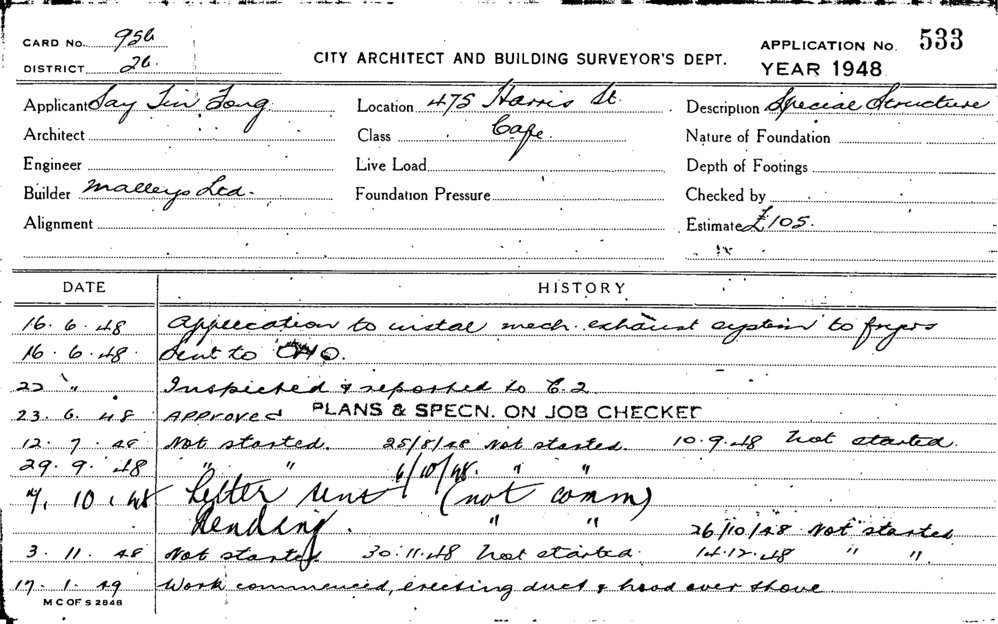 CARD No. 956
DISTRICT 26.
CITY ARCHITECT AND BUILDING SURVEYOR'S DEPT.
APPLICATION No. 533
YEAR 1948
Applicant Say Tin Fong. Location 475 Harris St. Description Special Structure
Architect Class Cafe. Nature of Foundation
Engineer Live Load Depth of Footings
Builder Malleys Ltd. Foundation Pressure Checked by
Alignment Estimate £105.
DATE HISTORY
16.6.48 Application to instal mech. exhaust system to fryers
16.6.48. Sent to CHO.
22 " Inspected & reported to E.2
23.6.48 APPROVED PLANS & SPECN. ON JOB CHECKED
12.7.48 Not started. 25/8/48 Not started. 10.9.48 Not started.
29.9.48 " " 6/10/48. " "
7.10.48 Letter sent (not comm)
Pending. " " 26/10/48 Not started
3.11.48 Not started 30.11.48 Not started. 14.12.48 " ".
17.1.49 Work commenced, erecting duct & hood over stove
M C OF S 2848